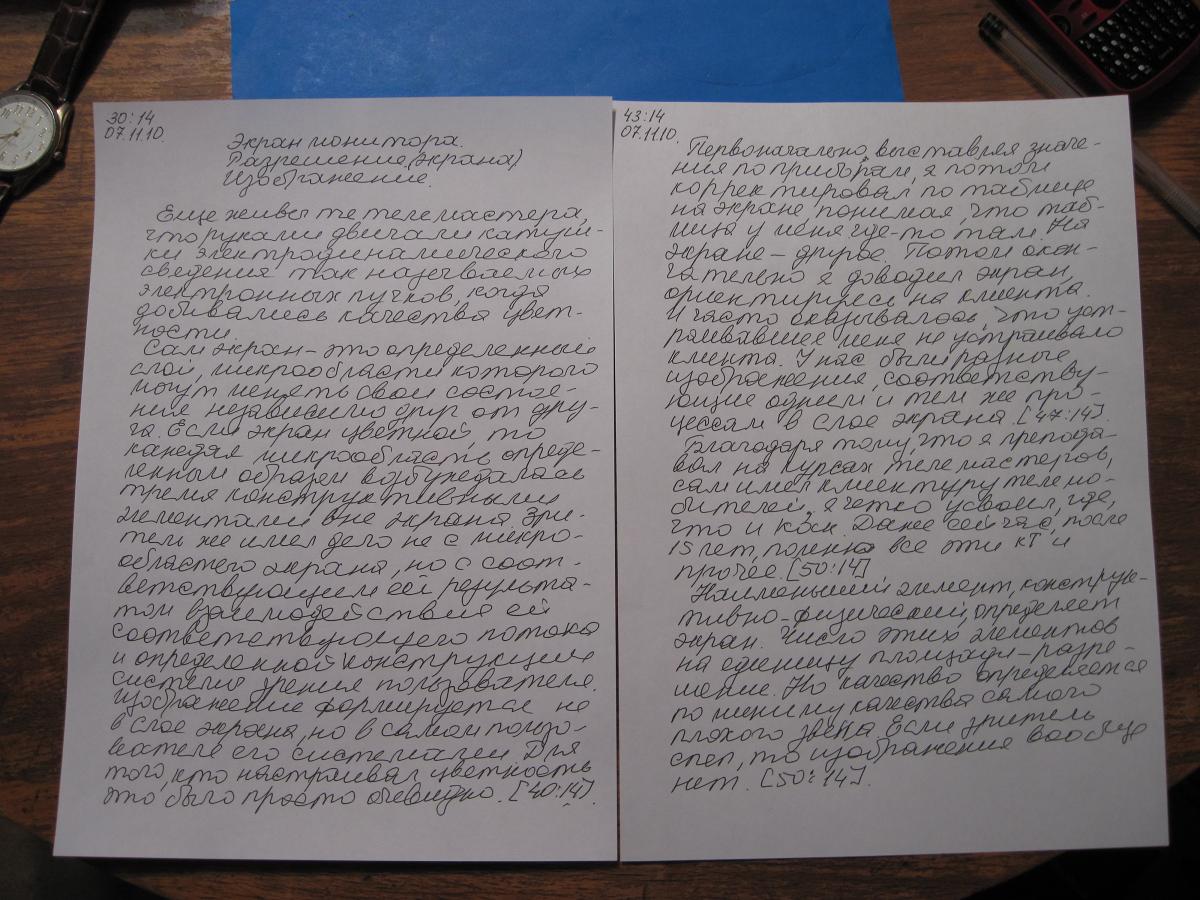 30:14
07.11.10.
Экран монитора.
Разрешение (экрана)
Изображение.
Еще живы те телемастера,
что руками двигали катуш-
ки электродинамического
сведения так называемых
электронных пучков, когда
добивались качества цвет-
ности.
Сам экран – это определенный
слой, микрообласти которого
могут менять свои состоя-
ния независимо друг от дру-
га. Если экран цветной, то
каждая микрообласть, опреде-
ленным образом возбуждалась
тремя конструктивными
элементами вне экрана. Зри-
тель же имел дело не с микро-
областью экрана, но с соот-
ветствующим ей результа-
том взаимодействия ей
соответствующего потока
и определенной конструкции
системы зрения пользователя.
Изображение формируется не
в слое экрана, но в самом пользо-
вателе его системами. Для
того, кто настраивал цветность
это было просто очевидно. [40:14].
43:14
07.11.10.
Первоначально, выставляя значе-
ния по приборам, я потом
корректировал по таблице
на экране, понимая, что таб-
лица у меня где-то там. На
экране – другое. Потом окон-
чательно я доводил экран,
ориентируясь на клиента.
И часто оказывалось, что уст-
раивавшее меня не устраивало
клиента. У нас были разные
изображения, соответству-
ющие одним и тем же про-
цессам в слое экрана. [47:14].
Благодаря тому, что я препода-
вал на курсах телемастеров,
сам имел клиентуру телелю-
бителей, я четко усвоил, где,
что и как. Даже сейчас, после
15 лет, помню все эти КТ и
прочее. [50:14]
Наименьший элемент, конструк-
тивно-физический, определяет
экран. Число этих элементов
на единицу площади – разре-
шение. Но качество определяется
по минимуму качества самого
плохого звена. Если зритель
слеп, то изображения вообще
нет. [50:14].